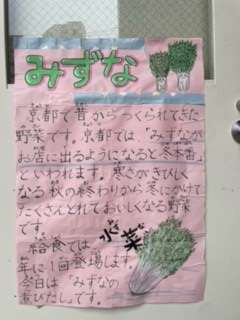 みずな
「京都で昔からつくられてきた
野菜です。京都では「みずなが
お店に出るようになると冬本番」
といわれます。寒さがきびしく
なる秋の終わりから冬にかけて
たくさんとれておいしくなる野菜
です。
給食では
年に1回登場します。
今日は「みずなの
煮びたし」です。
水菜